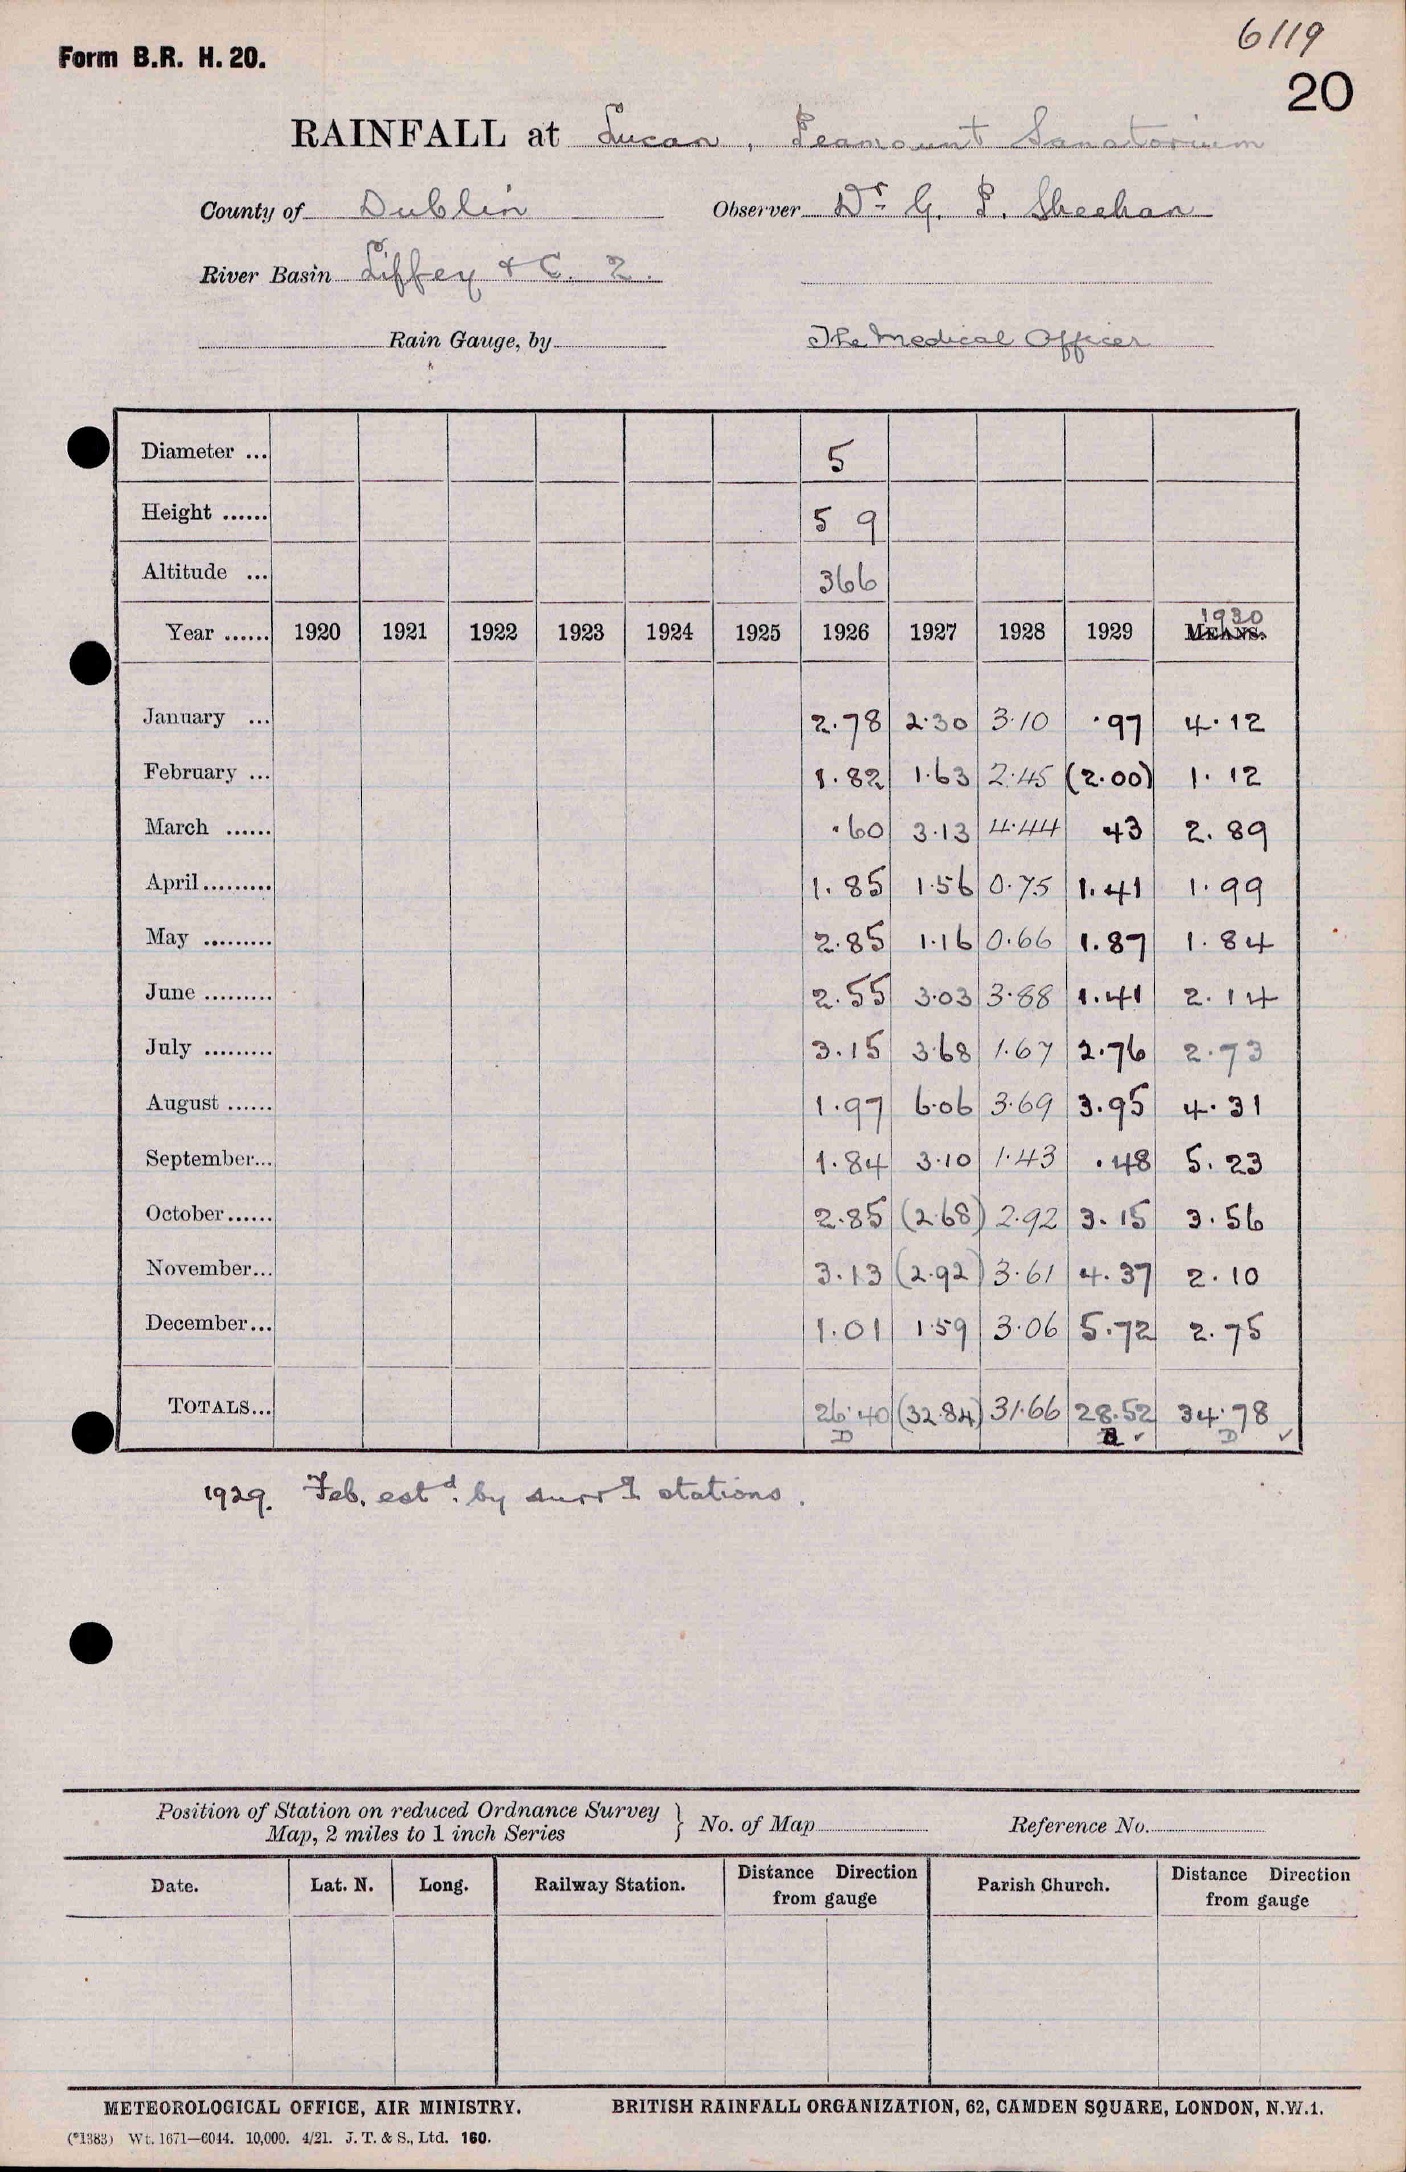 6119
Form B.R. H. 20.
20
RAINFALL at Lucan, Peamount Sanatorium
County of Dublin Observer Dr G. P. Sheehan
River Basin Liffey & C. 2.
Rain Gauge, by The Medical Officer
Diameter ... 5
Height ...... 5 9
Altitude ... 366
1930
Year ...... 1920 1921 1922 1923 1924 1925 1926 1927 1928 1929 MEANS.
January ... 2.78 2.30 3.10 .97 4.12
February ... 1.82 1.63 2.45 (2.00) 1.12
March ...... .60 3.13 4.44 43 2.89
April ......... 1.85 1.56 0.75 1.41 1.99
May ......... 2.85 1.16 0.66 1.87 1.84
June ......... 2.55 3.03 3.88 1.41 2.14
July ......... 3.15 3.68 1.67 2.76 2.73
August ...... 1.97 6.06 3.69 3.95 4.31
September... 1.84 3.10 1.43 .48 5.23
October...... 2.85 (2.68) 2.92 3.15 3.56
November... 3.13 (2.92) 3.61 4.37 2.10
December... 1.01 1.59 3.06 5.72 2.75
TOTALS... 26.40 (32.84) 31.66 28.52 34.78
D D
1929. Feb. estd. by surrg stations.
Position of Station on reduced Ordnance Survey } No. of Map Reference No.
Map, 2 miles to 1 inch Series
Date. Lat. N. Long. Railway Station. Distance Direction Parish Church. Distance Direction
from gauge from gauge
METEOROLOGICAL OFFICE, AIR MINISTRY. BRITISH RAINFALL ORGANIZATION, 62, CAMDEN SQUARE, LONDON, N.W.1.
(*1383) Wt. 1671—6044. 10,000. 4/21. J. T. & S., Ltd. 160.